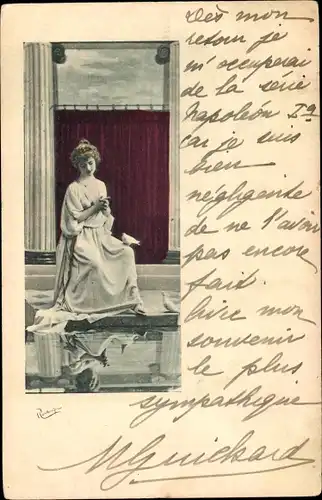 Dès mon
retour je
m'occuperai
de la série
Napoléon Ier
car je suis
bien
négligente
de ne l'avoir
pas encore
fait.
mon
souvenir
le plus
sympathique
MGuichard